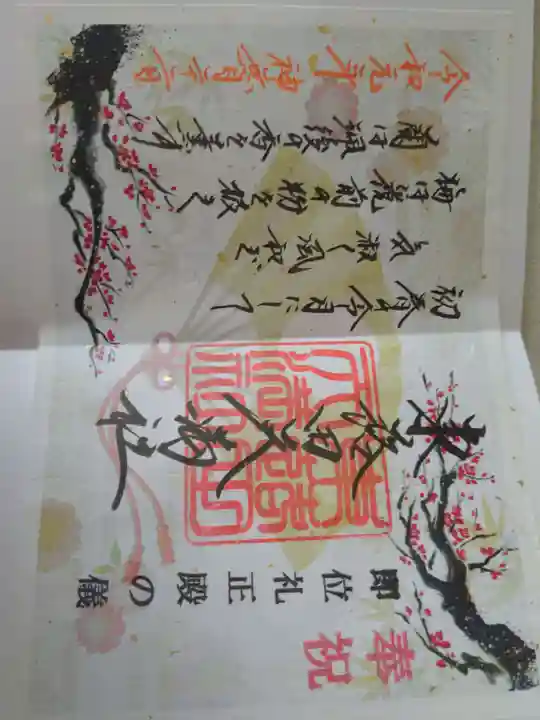 奉祝
即位礼正殿の儀
天満社
初春令月にして
気淑く風和ぎ
梅は鏡前の粉を披く
蘭は珮後の香を薫す
令和元年神無月二十二日